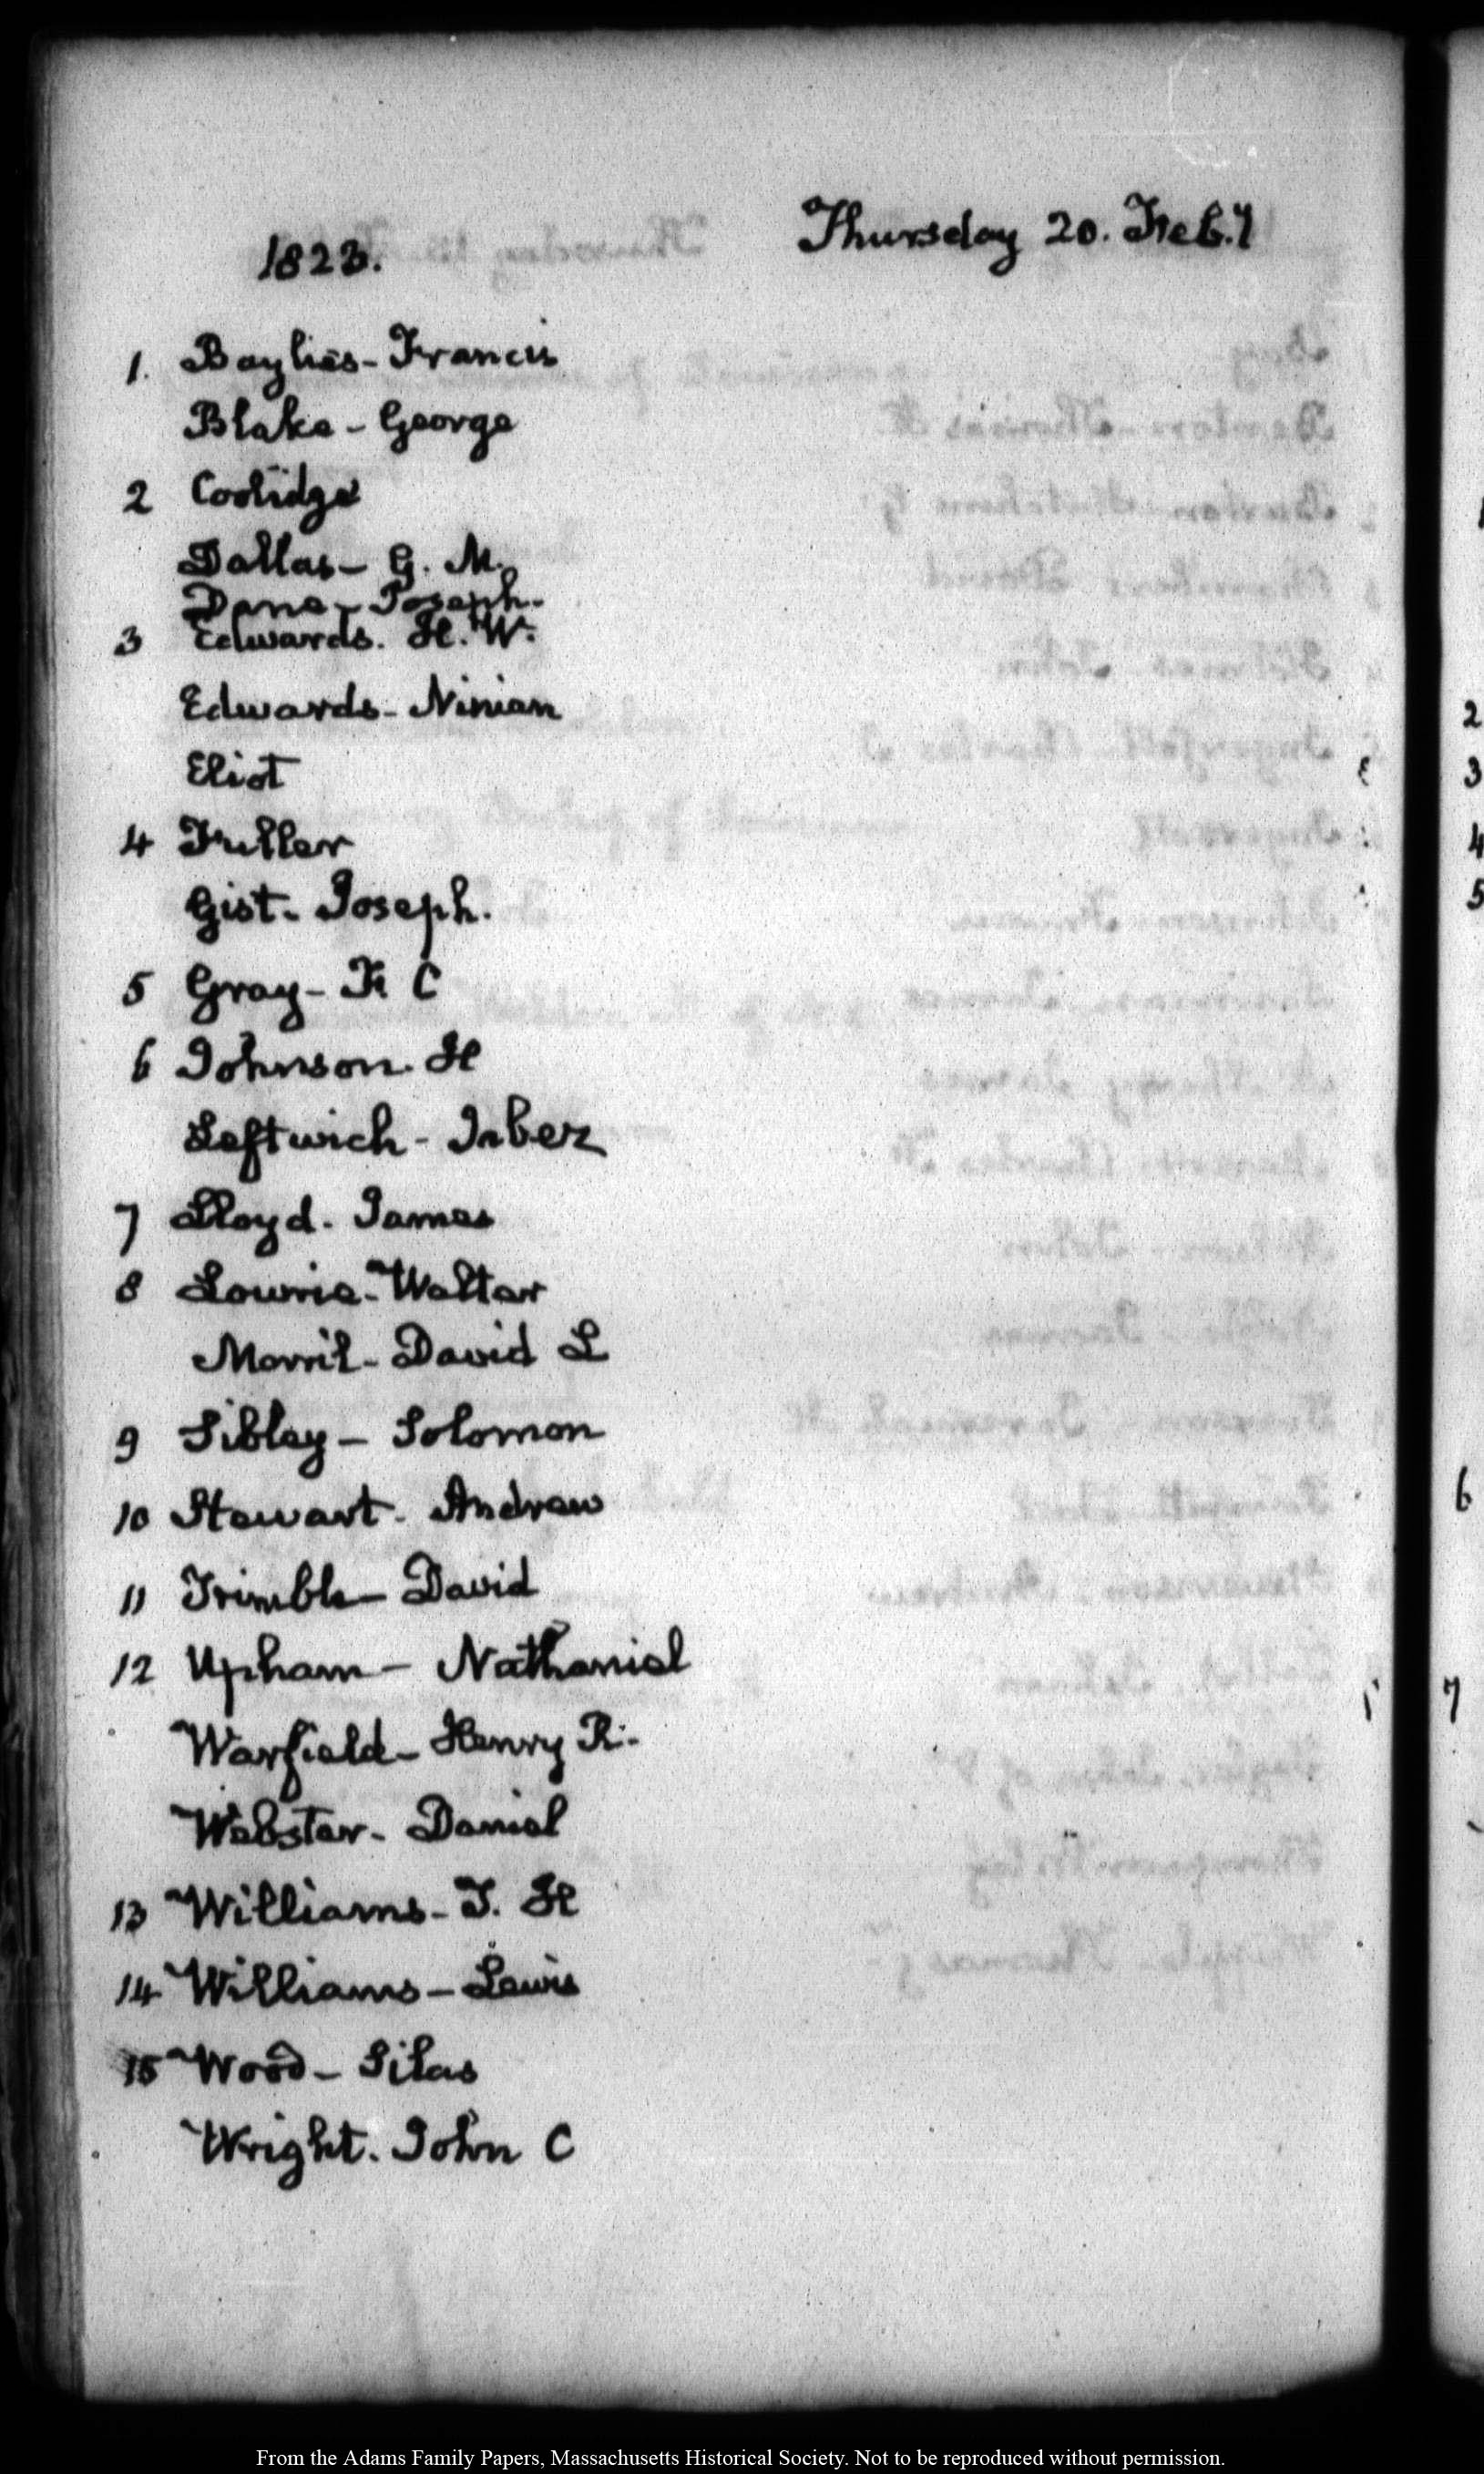 1823.
Thursday 20. Feb.y
1. Baylies - Francis
Blake - George
2 Coolidge
Dallas - G. M.
Dana - Joseph.
3 Edwards. H. W.
Edwards - Ninian
Eliot
4 Fuller
Gist - Joseph.
5 Gray - F C
6 Johnson. H
Leftwich - Jabez
7 Lloyd. James
8 Lowrie - Walter
Morril - David L
9 Sibley - Solomon
10 Stewart. Andrew
11 Trimble - David
12 Upham - Nathaniel
Warfield - Henry R.
Webster - Daniel
13 Williams - T. H
14 Williams - Lewis
15 Wood - Silas
Wright. John C
2
3
4
5
6
7
From the Adams Family Papers, Massachusetts Historical Society. Not to be reproduced without permission.